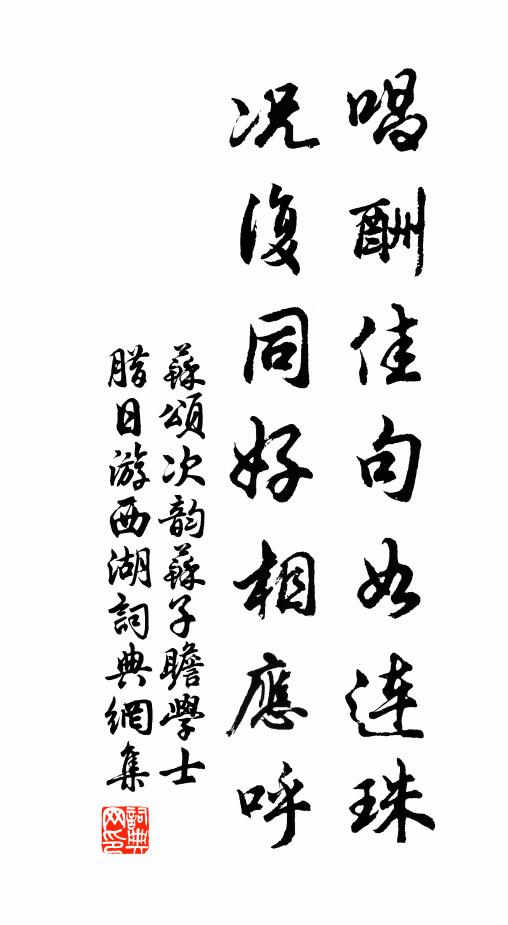 唱酬佳句如连珠
况復同好相應呼
蘇頌次韵蘇子瞻學士
腊日游西湖詞典網集
詞典網印